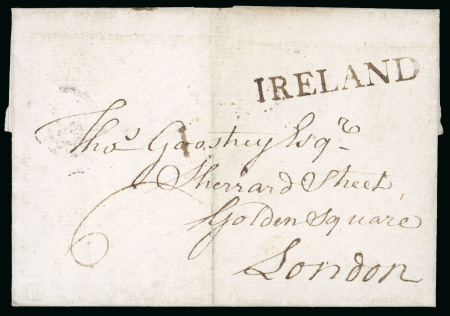 IRELAND
Thos Goostrey Esqre
Sherrard Street,
Golden Square
6
London